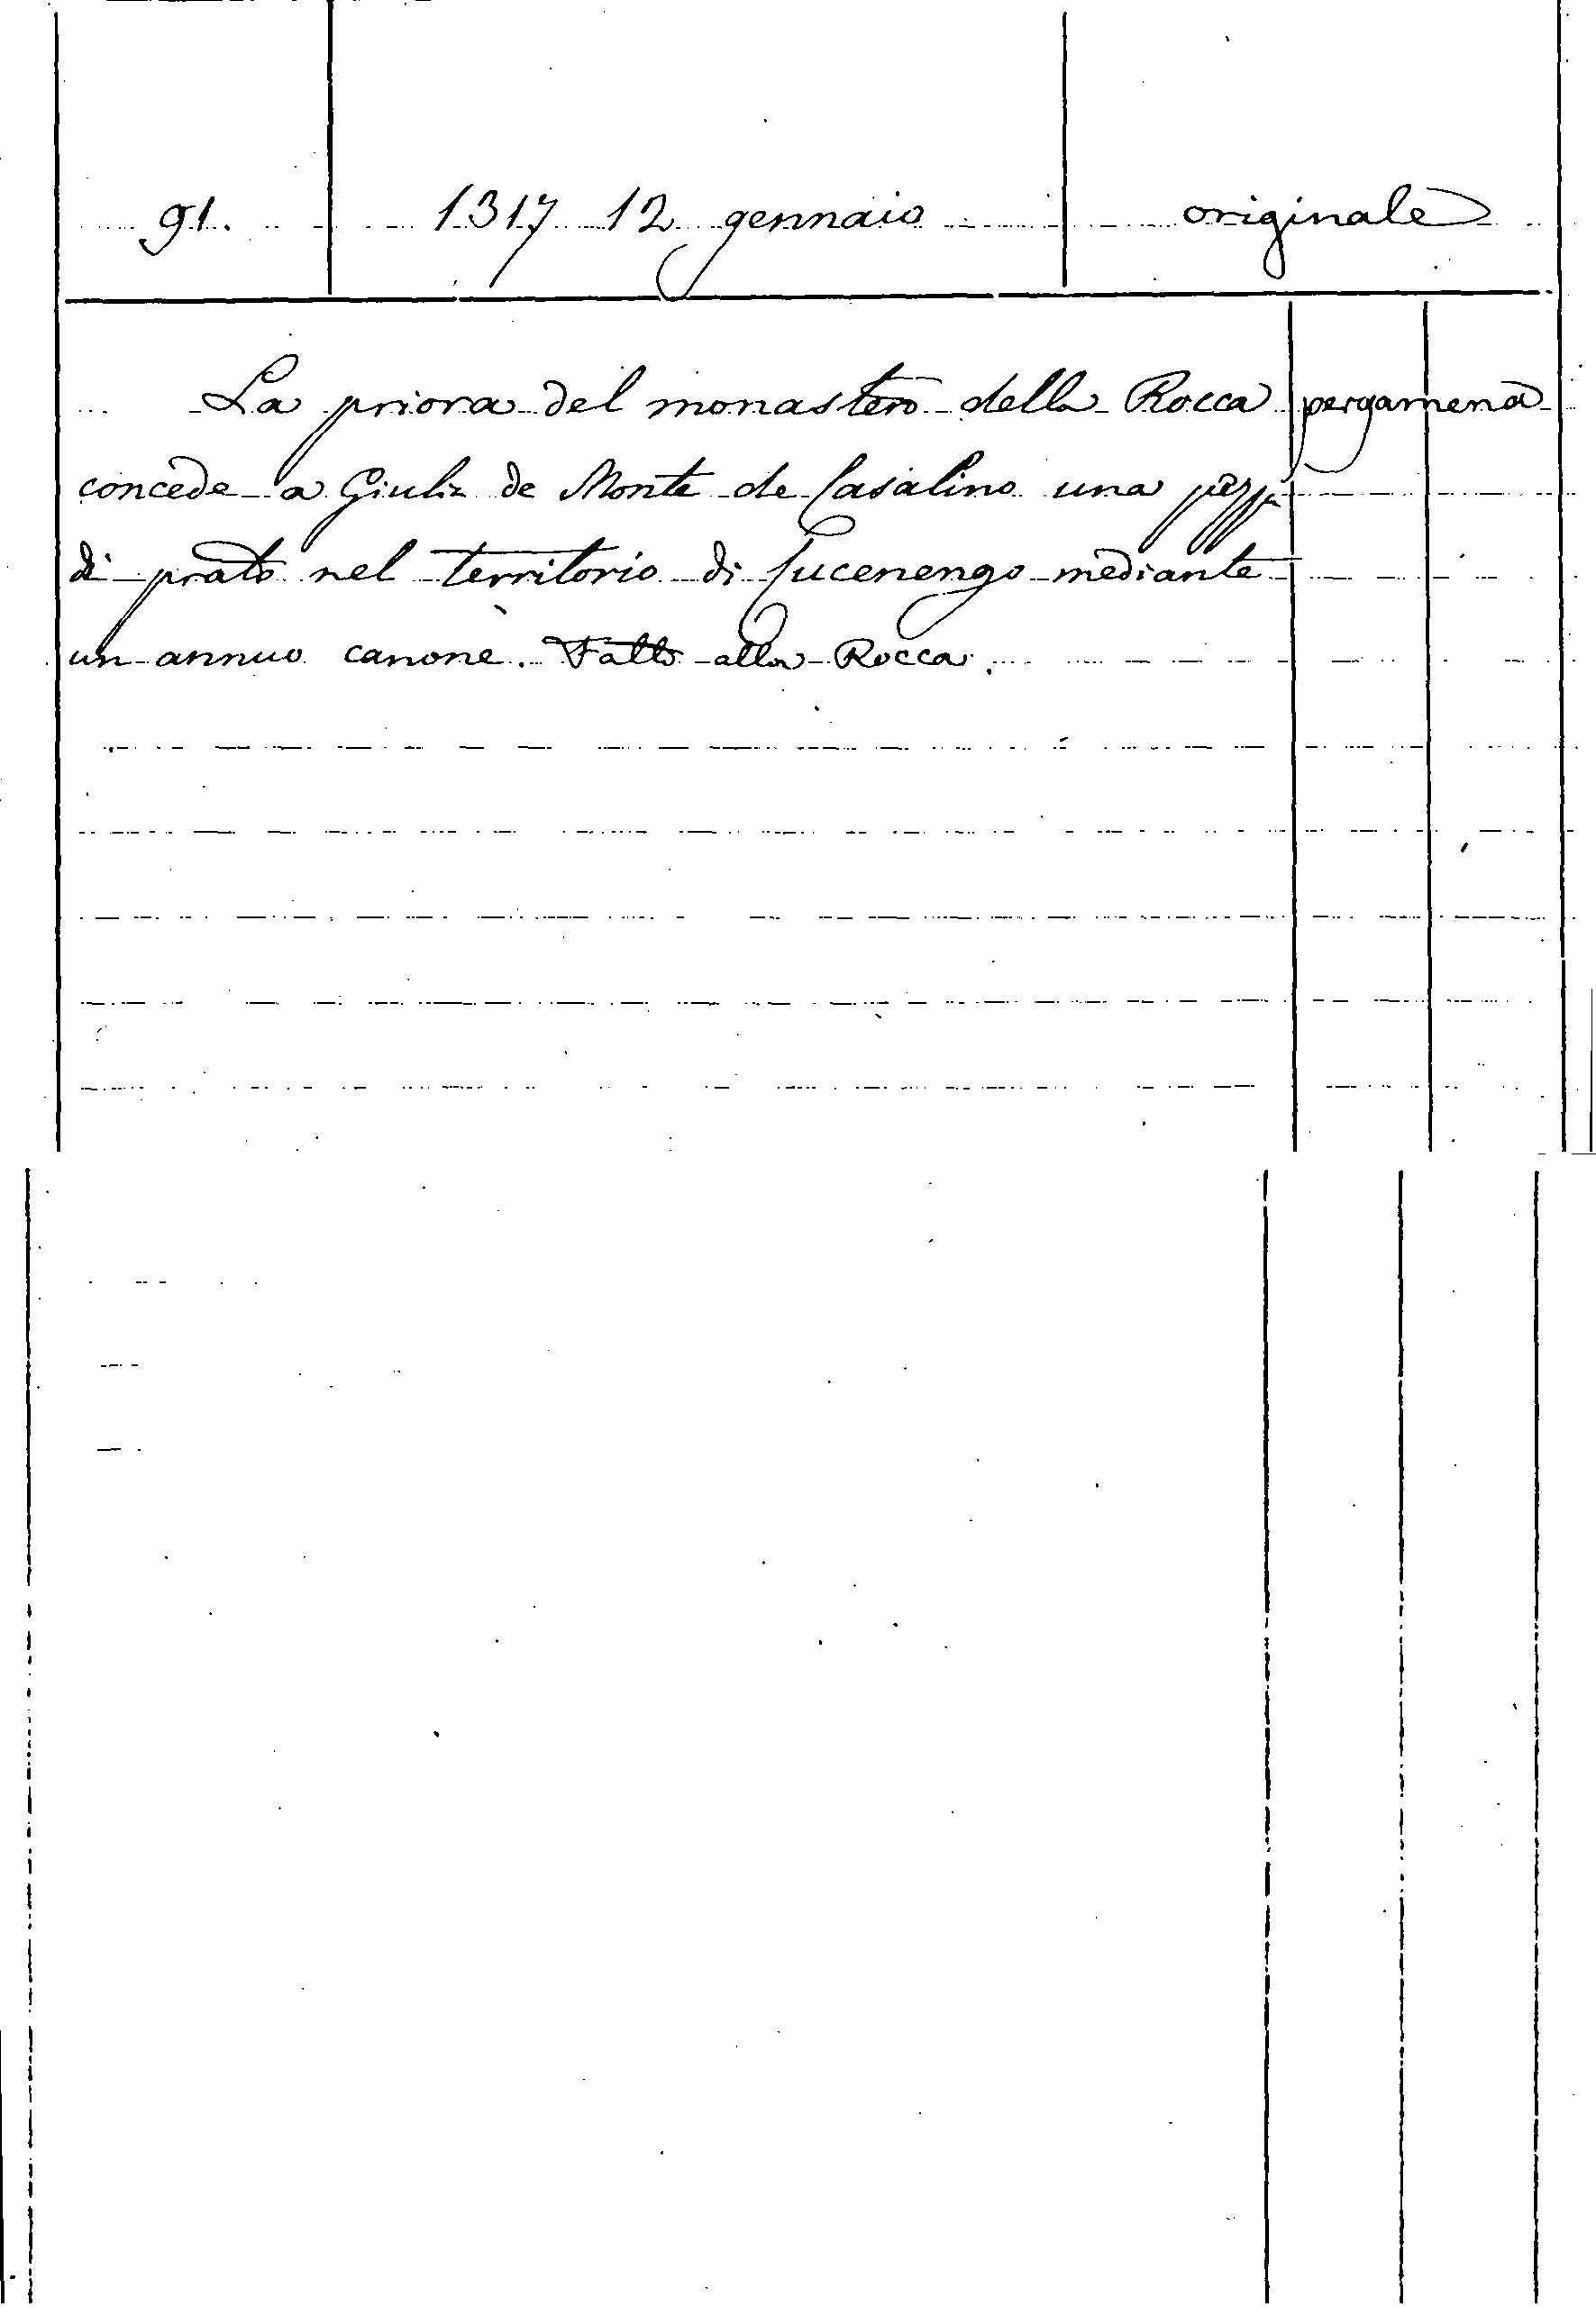 91. 1317 12 gennaio originale
La priora del monastero della Rocca pergamena
concede a Giulia de Monte de Casalino una pezza
di prato nel territorio di Lucenengo mediante
un annuo canone. Fatto alla Rocca.